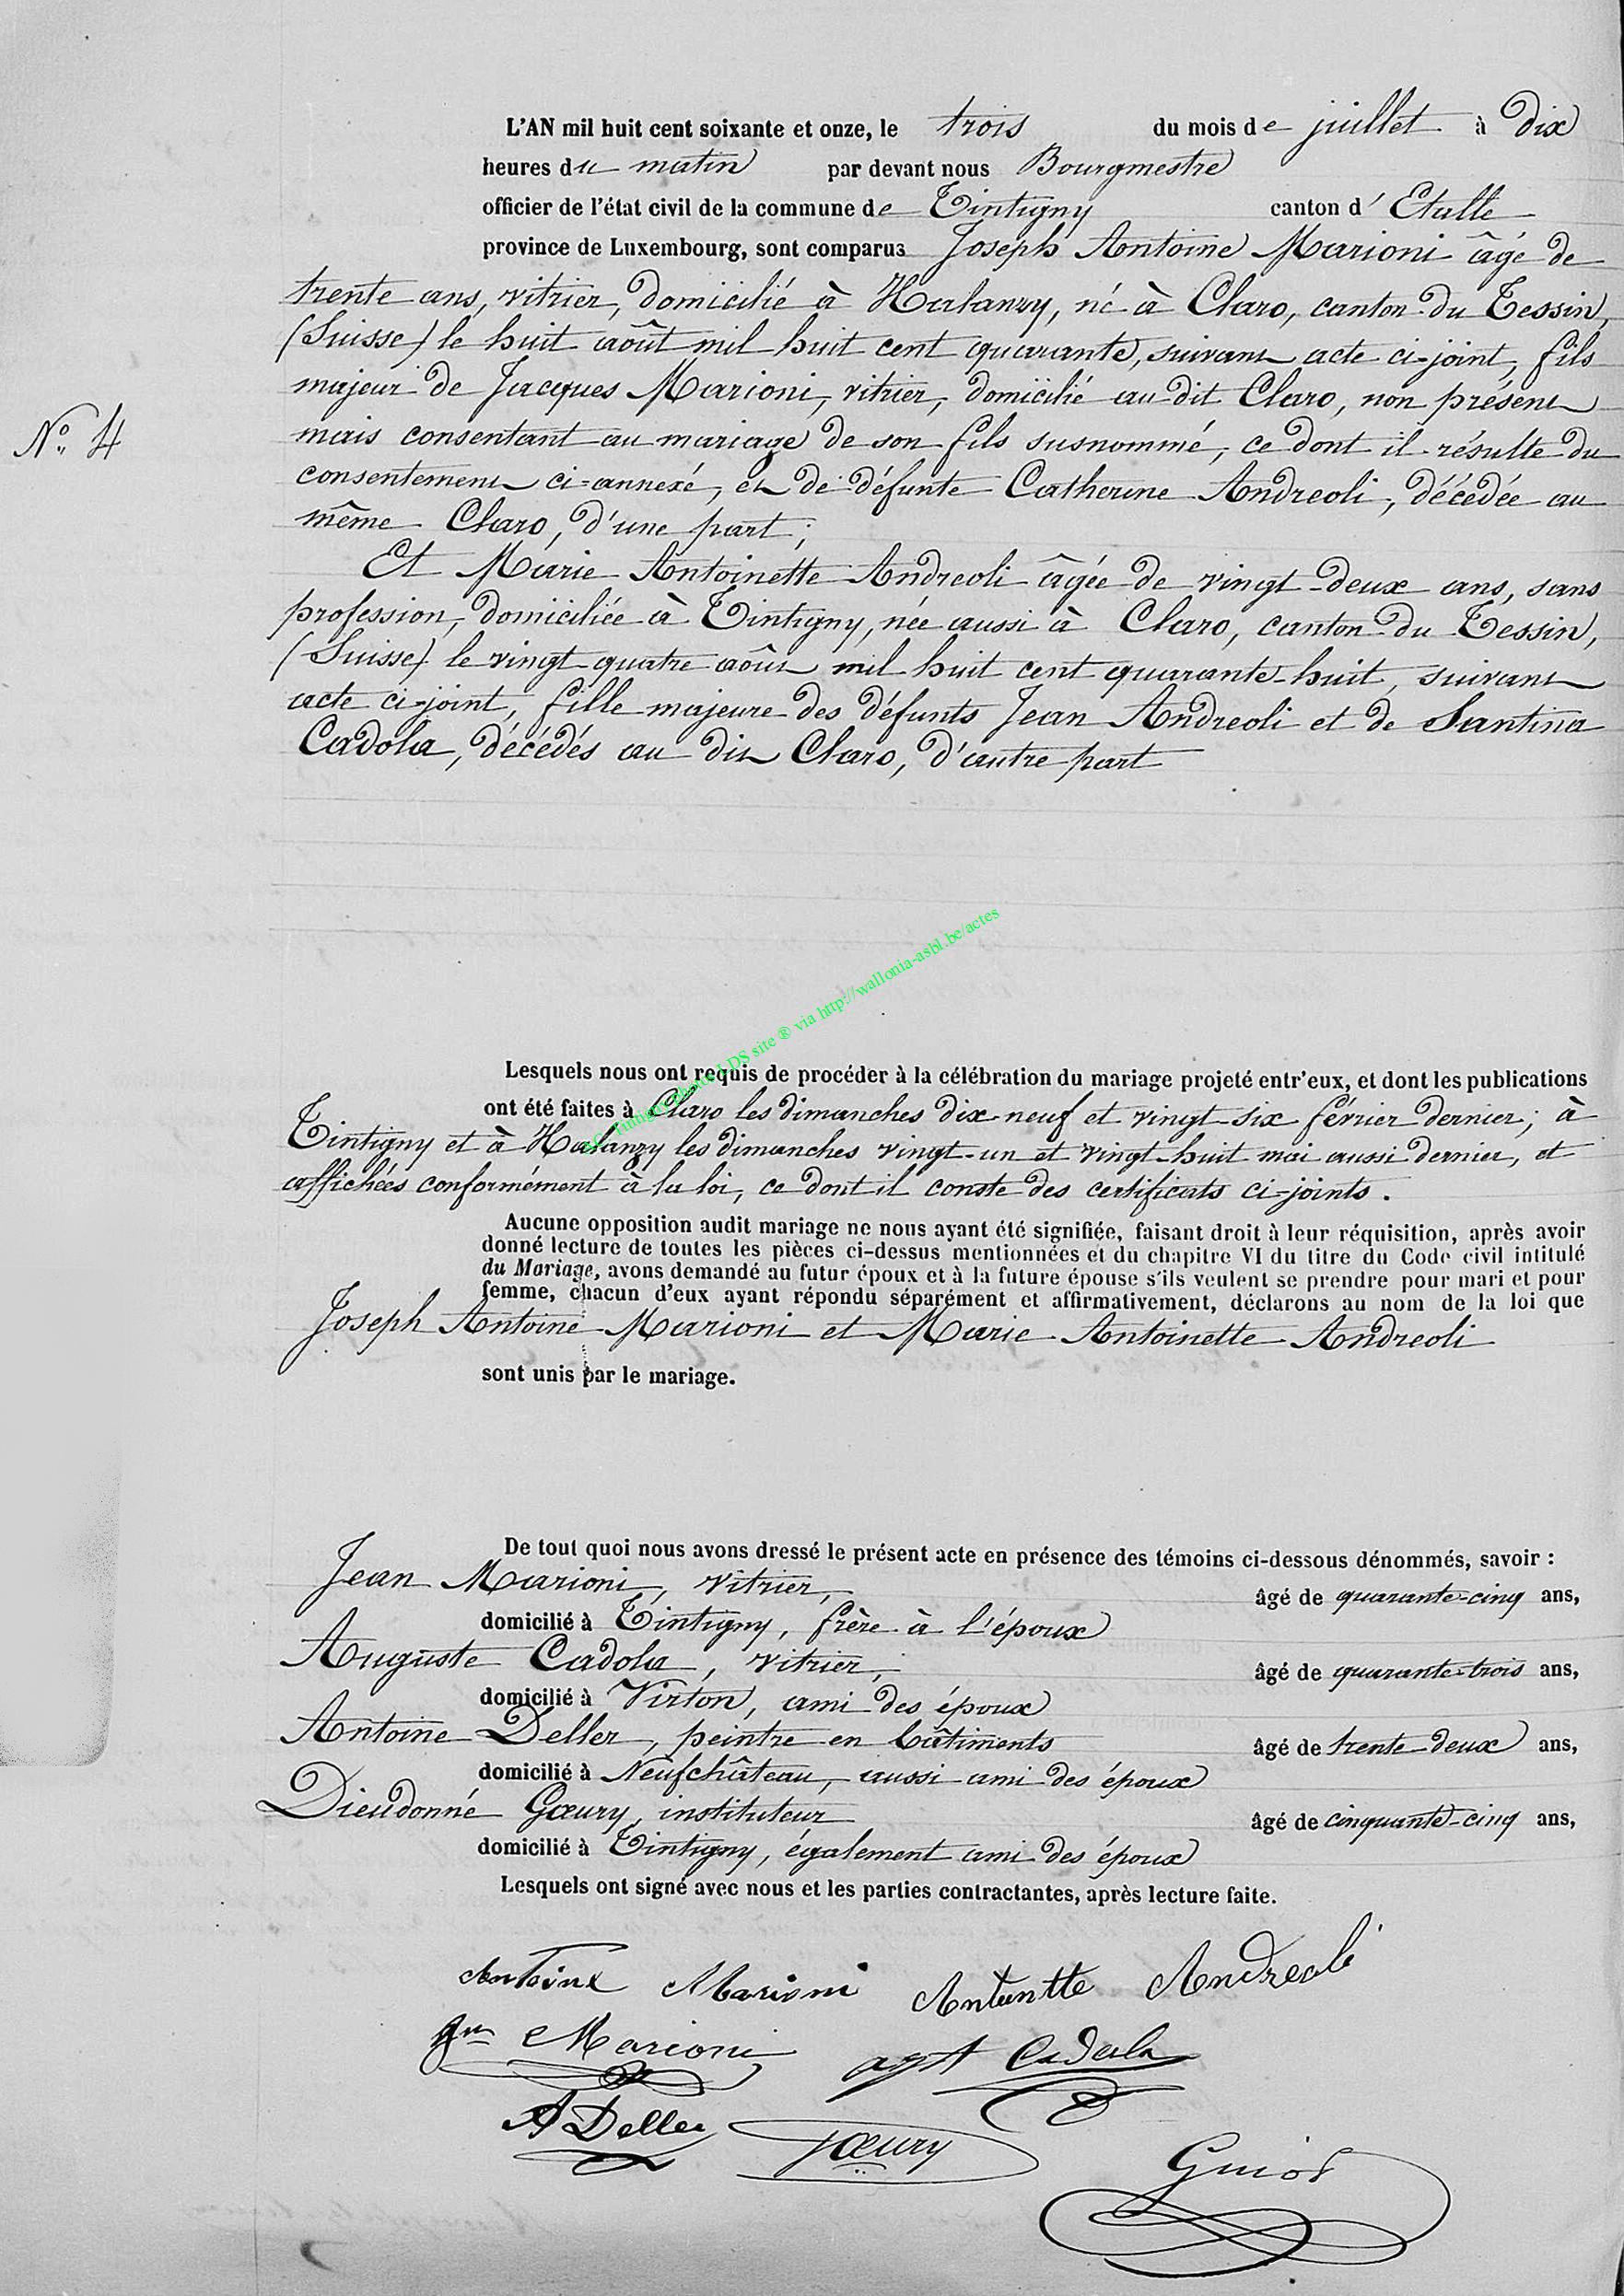 L'AN mil huit cent soixante et onze, le trois du mois de juillet à dix
heures du matin par devant nous Bourgmestre
officier de l'état civil de la commune de Tintigny canton d' Etalle
province de Luxembourg, sont comparus Joseph Antoine Marioni âgé de
trente ans, vitrier, domicilié à Halanzy, né à Claro, canton du Tessin,
(Suisse) le huit août mil huit cent quarante, suivant acte ci-joint, fils
majeur de Jacques Marioni, vitrier, domicilié au dit Claro, non présent
N° 4
mais consentant au mariage de son fils susnommé, ce dont il résulte du
consentement ci-annexé, et de défunte Catherine Andreoli, décédée au
même Claro, d'une part;
Et Marie Antoinette Andreoli âgée de vingt-deux ans, sans
profession, domiciliée à Tintigny, née aussi à Claro, canton du Tessin,
(Suisse) le vingt-quatre août mil huit cent quarante-huit, suivant
acte ci-joint, fille majeure des défunts Jean Andreoli et de Santina
Cadola, décédés au dit Claro, d'autre part
Lesquels nous ont requis de procéder à la célébration du mariage projeté entr'eux, et dont les publications
ont été faites à Claro les dimanches dix-neuf et vingt-six février dernier; à
Tintigny et à Halanzy les dimanches vingt-un et vingt-huit mai aussi dernier, et
affichées conformément à la loi, ce dont il conste des certificats ci-joints.
Aucune opposition audit mariage ne nous ayant été signifiée, faisant droit à leur réquisition, après avoir
donné lecture de toutes les pièces ci-dessus mentionnées et du chapitre VI du titre du Code civil intitulé
du Mariage, avons demandé au futur époux et à la future épouse s'ils veulent se prendre pour mari et pour
femme, chacun d'eux ayant répondu séparément et affirmativement, déclarons au nom de la loi que
Joseph Antoine Marioni et Marie Antoinette Andreoli
sont unis par le mariage.
De tout quoi nous avons dressé le présent acte en présence des témoins ci-dessous dénommés, savoir :
Jean Marioni, vitrier, âgé de quarante-cinq ans,
domicilié à Tintigny, frère à l'époux
Auguste Cadola, vitrier, âgé de quarante-trois ans,
domicilié à Virton, ami des époux
Antoine Deller, peintre en bâtiments âgé de trente-deux ans,
domicilié à Neufchâteau, aussi ami des époux
Dieudonné Gœury, instituteur âgé de cinquante-cinq ans,
domicilié à Tintigny, également ami des époux
Lesquels ont signé avec nous et les parties contractantes, après lecture faite.
Antoine Marioni Antuntte Andreoli
Jn Marioni agt Cadola
A Deller Gœury
Guiot
LDS site ® via http://wallonia-asbl.be/actes